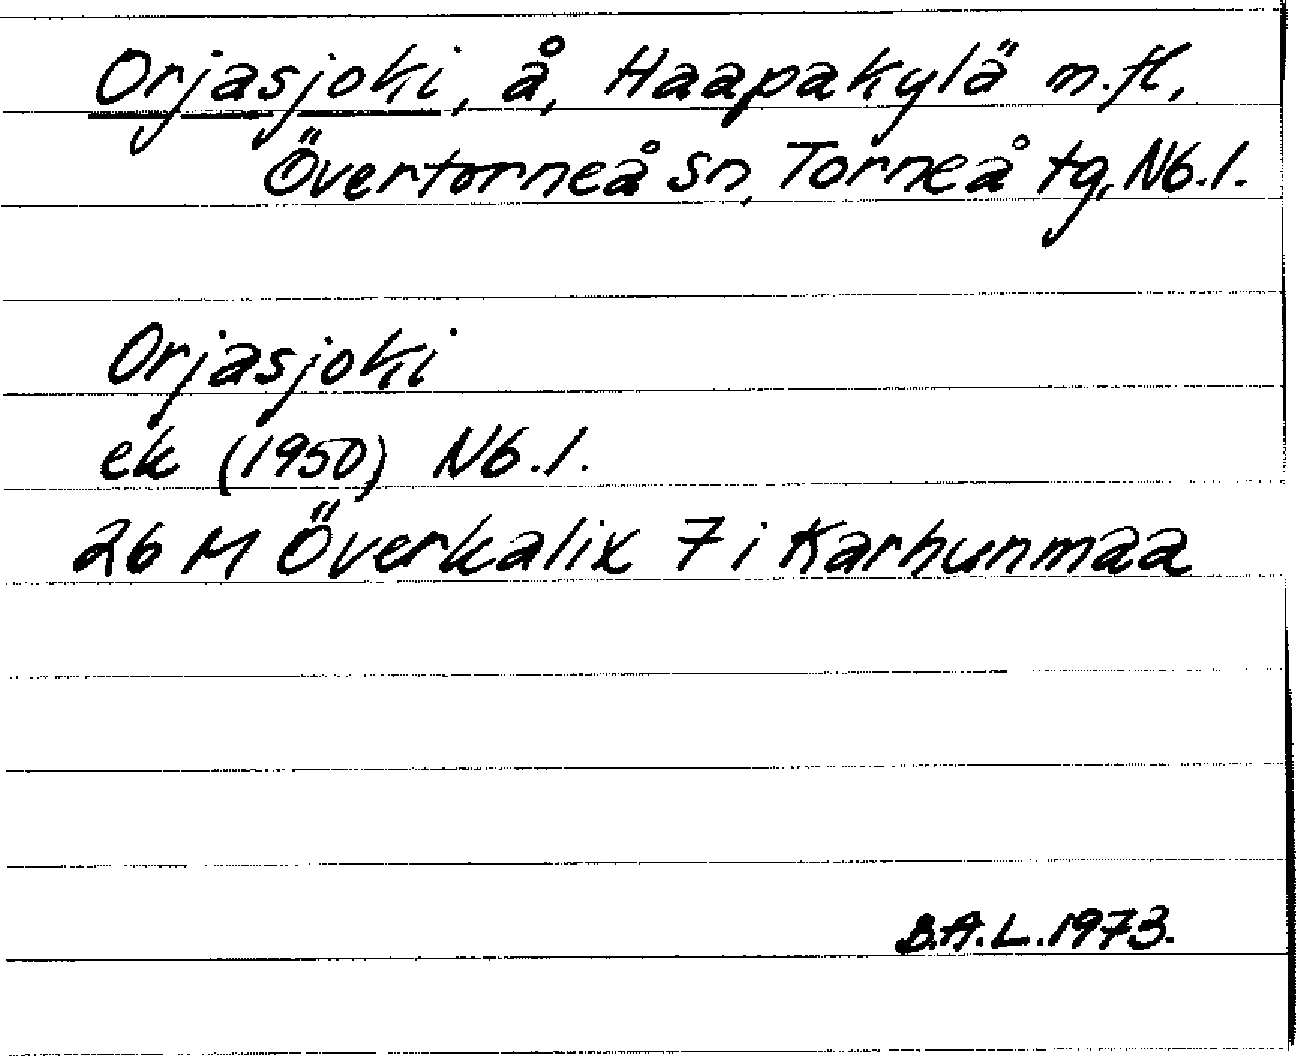 Orjasjoki, å, Haapakylä m.fl,
Övertorneå sn, Torneå tg, Nb.l.
Orjasjoki
ek (1950) Nb.l.
26 M Överkalix 7 i Karhunmaa
B.A.L. 1973.